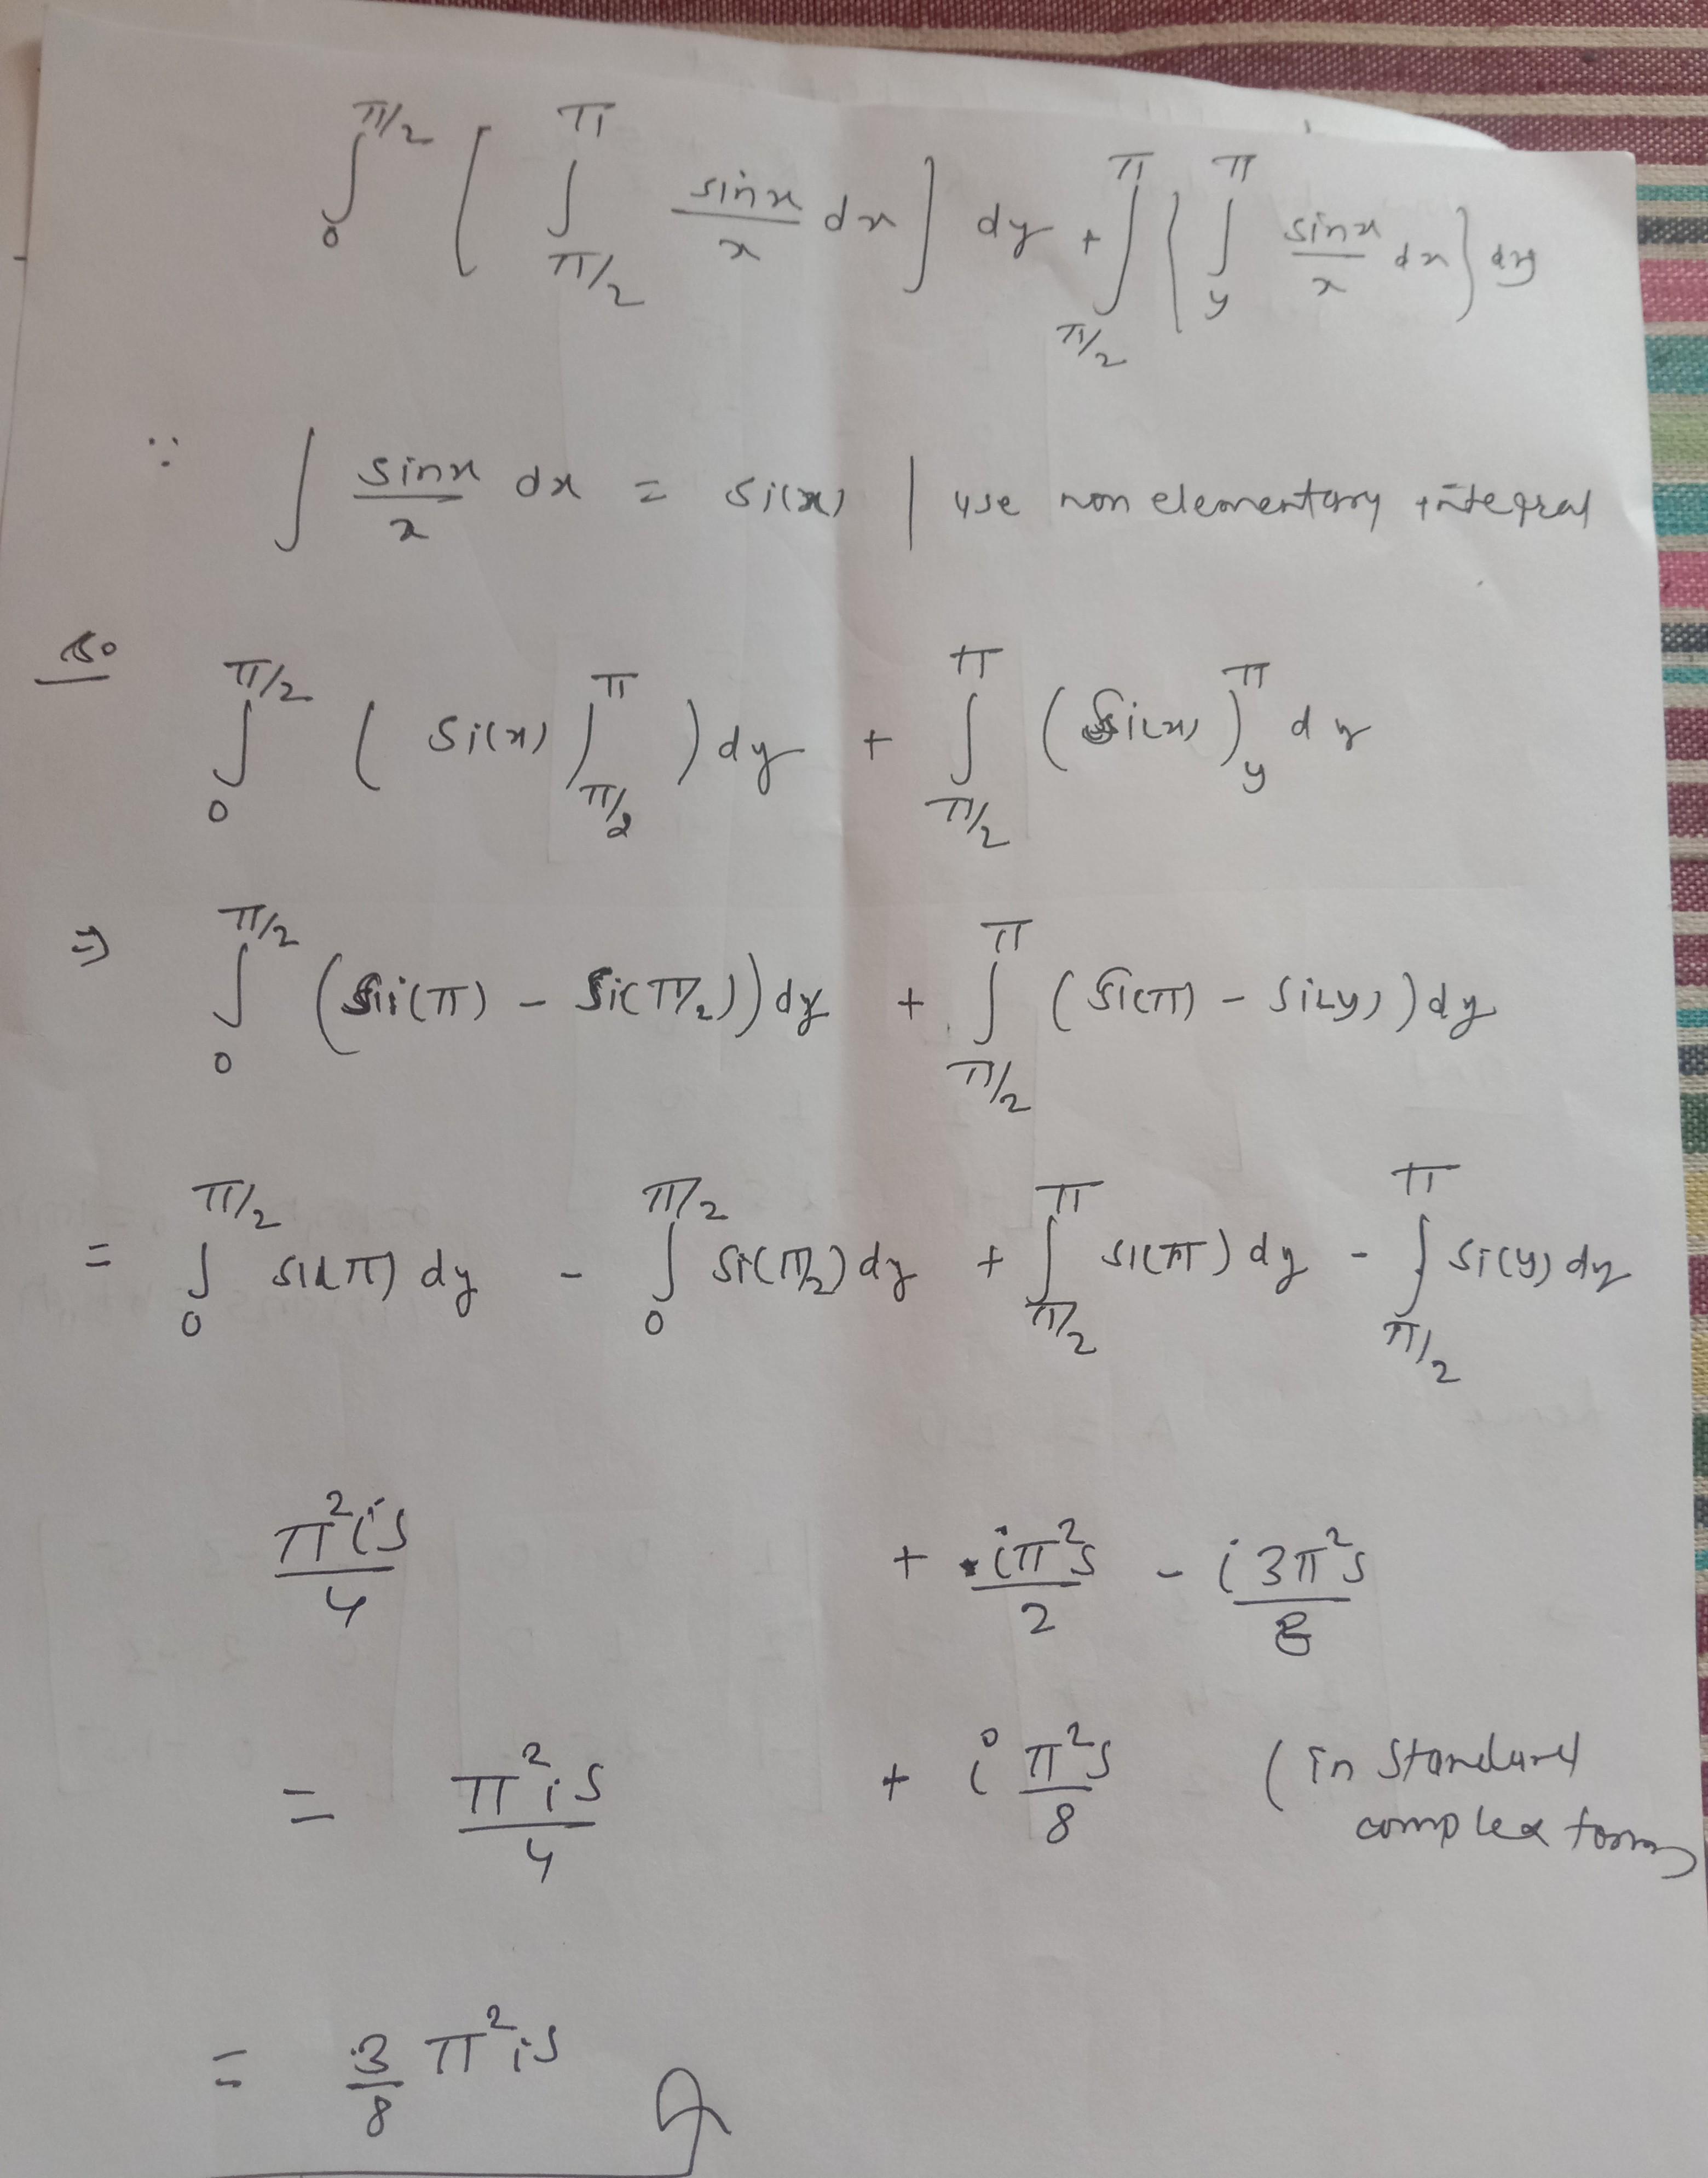 ∫₀^{π/2} [ ∫_{π/2}^{π} sinx/x dx ] dy + ∫_{π/2}^{π} { ∫_y^π sinx/x dx } dy
∵ ∫ sinx/x dx = si(x) | use non elementary integral
so ∫₀^{π/2} ( Si(x) )_{π/2}^{π} ) dy + ∫_{π/2}^{π} ( Si(x) )_y^π dy
⇒ ∫₀^{π/2} (Si(π) - Si(π/2)) dy + ∫_{π/2}^{π} (Si(π) - Si(y)) dy
= ∫₀^{π/2} Si(π) dy - ∫₀^{π/2} Si(π/2) dy + ∫_{π/2}^{π} Si(π) dy - ∫_{π/2}^{π} Si(y) dy
π²is/4 + iπ²s/2 - i3π²s/8
= π²is/4 + i π²s/8 (in standard
complex form)
= 3/8 π²is